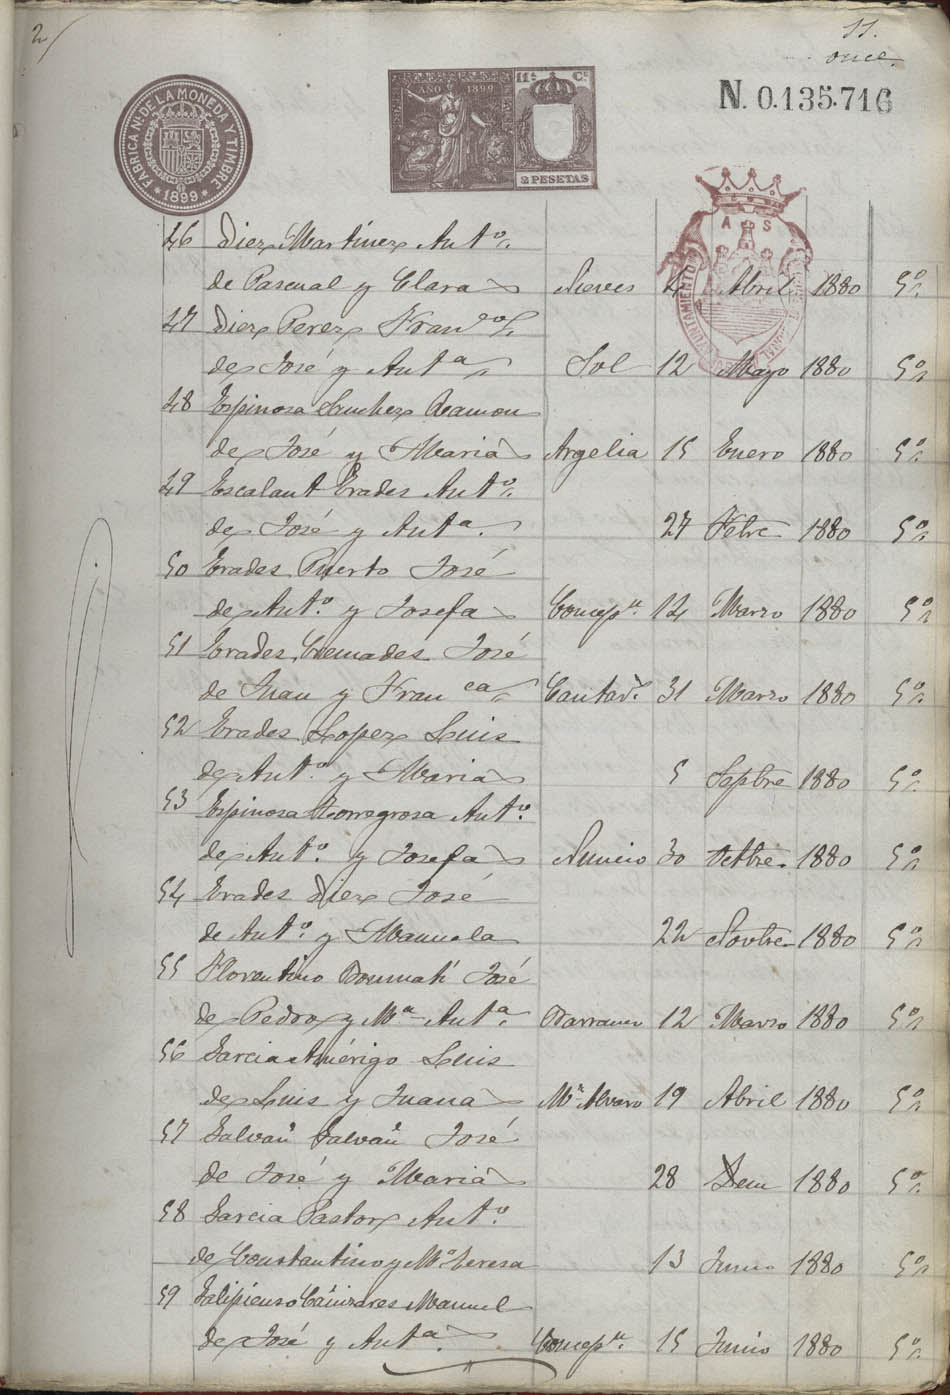 2
11.
once.
FABRICA Nl. DE LA MONEDA Y TIMBRE
1899
AÑO 1899
11ª Cª
2 PESETAS
N. 0.135.716
A S
AYUNTAMIENTO
46 Diez Martinez Antº.
de Pascual y Clara Nieves 4 Abril 1880 5º
47 Diez Perez Francº
de José y Antª Sol 12 Mayo 1880 5º
48 Espinosa Sanchez Ramon
de José y Maria Argelia 15 Enero 1880 5º
49 Escalant Erades Antº.
de José y Antª. 27 Febre 1880 5º
50 Erades Puerto José
de Antº. y Josefa Concepn. 14 Marzo 1880 5º
51 Erades Cremades José
de Juan y Franca Cantar. 31 Marzo 1880 5º
52 Erades Lopez Luis
de Antº. y Maria 5 Septbre 1880 5º
53 Espinosa Torregrosa Antº.
de Antº. y Josefa Nuncio 30 Octbre. 1880 5º
54 Erades Diez José
de Antº. y Manuela 22 Novbre 1880 5º
55 Florentino José
de Pedro y Mª Antª. 12 Marzo 1880 5º
56 Garcia Amérigo Luis
de Luis y Juana Mn. Alvaro 19 Abril 1880 5º
57 Galvañ Galvañ José
de José y Maria 28 Idem 1880 5º
58 Garcia Pastor Antº.
de Constantino y Mª Teresa 13 Junio 1880 5º
59 Galipienso Cañizares Manuel
de José y Antª. Concepn. 15 Junio 1880 5º